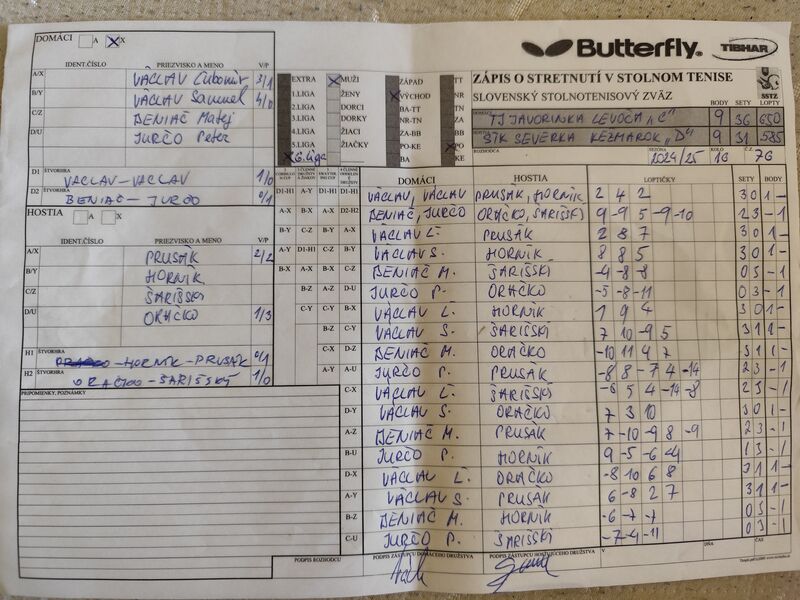 DOMÁCI A X X
IDENT.ČÍSLO PRIEZVISKO A MENO V/P
A/X VÁCLAV Ľubomír 3/1
B/Y VÁCLAV Samuel 4/0
C/Z BENIAČ Matej
D/U JURČO Peter
D1 ŠTVORHRA VÁCLAV-VÁCLAV 1/0
D2 ŠTVORHRA BENIAČ-JURČO 0/1
HOSTIA A X
IDENT.ČÍSLO PRIEZVISKO A MENO V/P
A/X PRUSÁK 2/2
B/Y HORNÍK
C/Z ŠARIŠSKÝ
D/U ORAČKO 1/3
H1 ŠTVORHRA -HORNÍK-PRUSÁK 0/1
H2 ŠTVORHRA ORAČKO-ŠARIŠSKÝ 1/0
PRIPOMIENKY, POZNÁMKY
EXTRA X MUŽI ZÁPAD TT
1.LIGA ŽENY X VÝCHOD NR
2.LIGA DORCI BA-TT TN
3.LIGA DORKY NR-TN ZA
4.LIGA ŽIACI ZA-BB BB
5.LIGA ŽIAČKY PO-KE X PO
X 6.liga BA KE
Butterfly TIBHAR
ZÁPIS O STRETNUTÍ V STOLNOM TENISE
SLOVENSKÝ STOLNOTENISOVÝ ZVÄZ SSTZ
BODY SETY LOPTY
DOMÁCI TJ JAVORINKA LEVOČA "C" 9 36 650
HOSTIA STK SEVERKA KEŽMAROK "D" 9 31 585
ROZHODCA SEZÓNA 2024/25 KOLO 16 Č. 76
DOMÁCI HOSTIA LOPTIČKY SETY BODY
D1-H1 A-Y D1-H1 D1-H1 VÁCLAV, VÁCLAV PRUSÁK, HORNÍK 2 4 2 3 0 1 -
A-X B-X A-X D2-H2 BENIAČ, JURČO ORAČKO, ŠARIŠSKÝ 9 -9 5 -9 -10 2 3 - 1
B-Y C-Z B-Y A-X VÁCLAV Ľ. PRUSÁK 2 8 7 3 0 1 -
A-Y D1-H1 C-Z B-Y VÁCLAV S. HORNÍK 8 8 5 3 0 1 -
B-X A-X B-X C-Z BENIAČ M. ŠARIŠSKÝ -4 -8 -8 0 3 - 1
B-Z A-Z D-U JURČO P. ORAČKO -5 -8 -11 0 3 - 1
C-Y C-Y B-X VÁCLAV Ľ. HORNÍK 1 9 4 3 0 1 -
B-Z C-Y VÁCLAV S. ŠARIŠSKÝ 7 10 -9 5 3 1 1 -
C-X D-Z BENIAČ M. ORAČKO -10 11 4 7 3 1 1 -
A-Y A-U JURČO P. PRUSÁK -8 8 -7 4 -14 2 3 - 1
C-X VÁCLAV Ľ. ŠARIŠSKÝ -6 5 4 -14 -8 2 3 - 1
D-Y VÁCLAV S. ORAČKO 7 3 10 3 0 1 -
A-Z BENIAČ M. PRUSÁK 7 -10 -9 8 -9 2 3 - 1
B-U JURČO P. HORNÍK 9 -5 -6 -4 1 3 - 1
D-X VÁCLAV Ľ. ORAČKO -8 10 6 8 3 1 1 -
A-Y VÁCLAV S. PRUSÁK 6 -8 2 7 3 1 1 -
B-Z BENIAČ M. HORNÍK -6 -7 -7 0 3 - 1
C-U JURČO P. ŠARIŠSKÝ -7 -4 -11 0 3 - 1
PODPIS ROZHODCU PODPIS ZÁSTUPCU DOMÁCEHO DRUŽSTVA PODPIS ZÁSTUPCU HOSŤUJÚCEHO DRUŽSTVA V DŇA ČAS